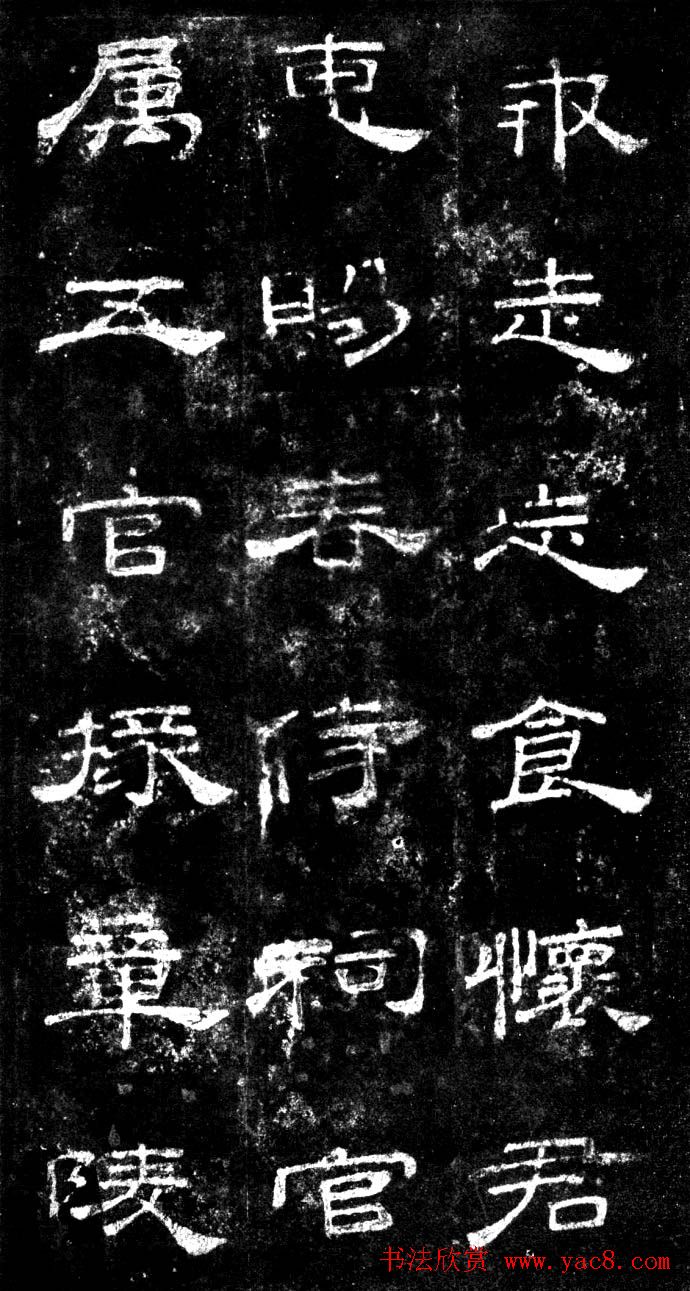 走忘食懷君
惠賜春侍祠官
属五官掾章陵
书法欣赏 www.yac8.com